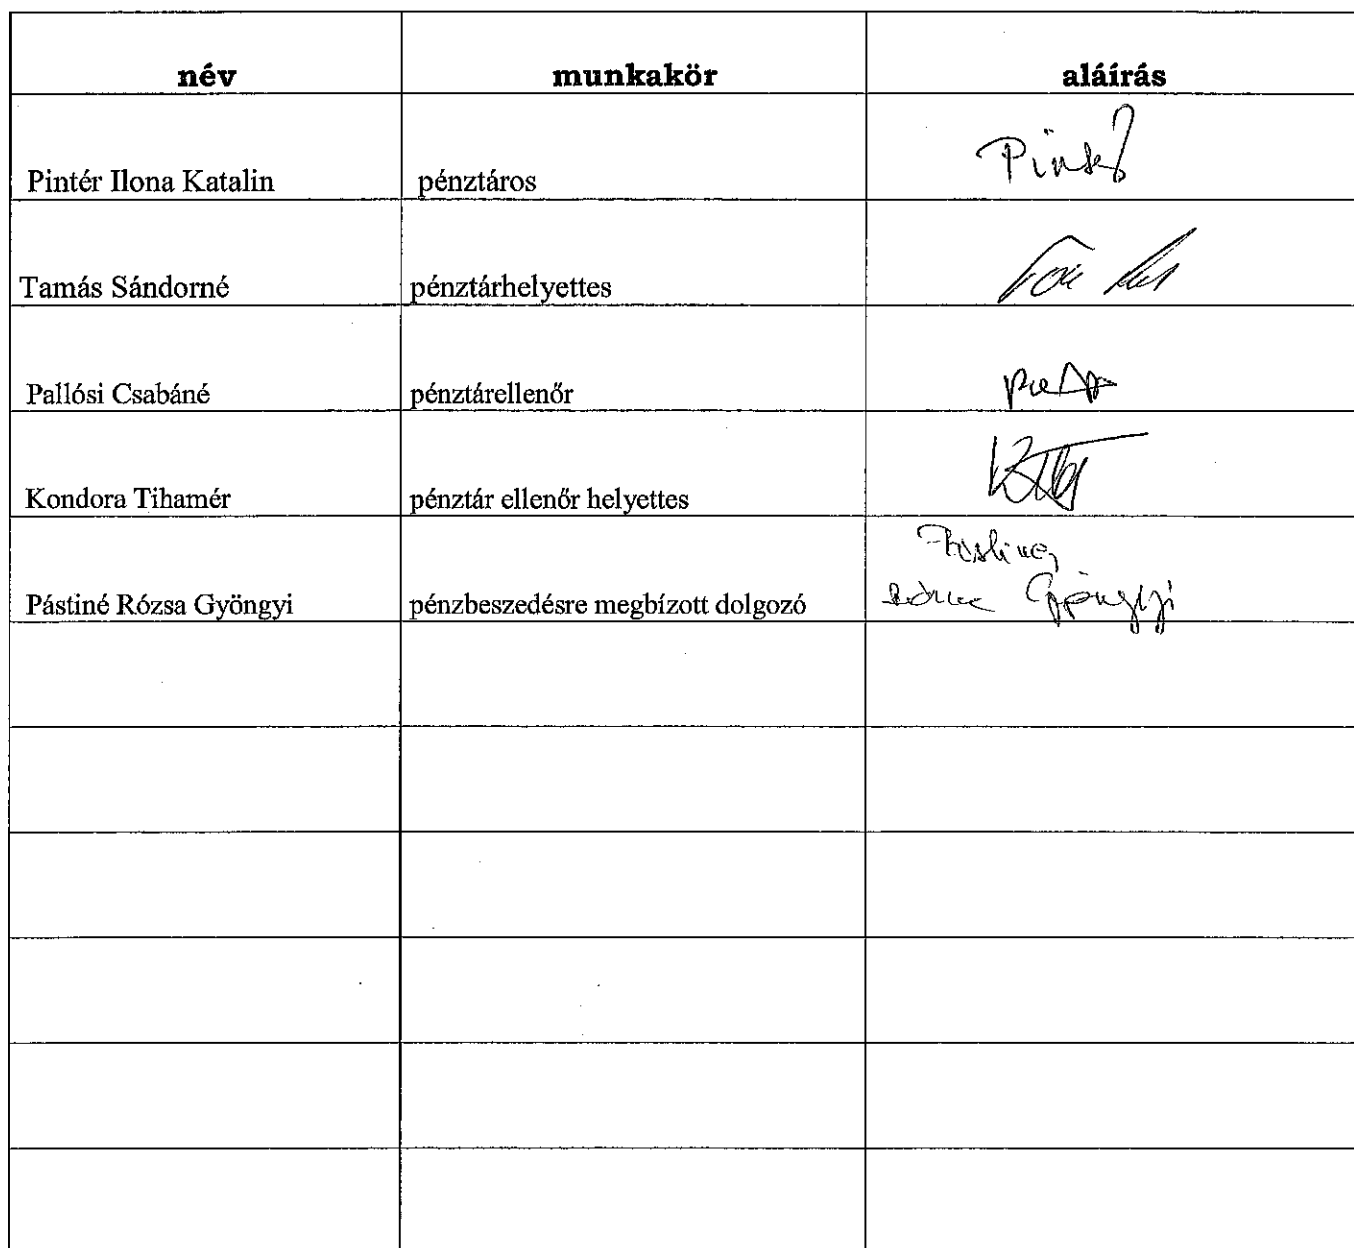 név munkakör aláírás
Pintér Ilona Katalin pénztáros
Tamás Sándorné pénztárhelyettes
Pallósi Csabáné pénztárellenőr
Kondora Tihamér pénztár ellenőr helyettes
Pástiné Rózsa Gyöngyi pénzbeszedésre megbízott dolgozó Gyöngyi